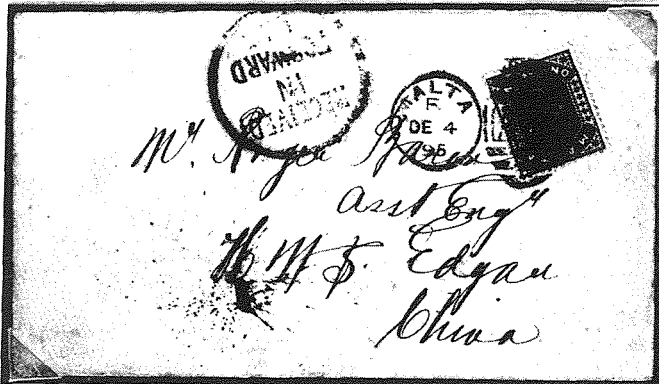 RECEIVED
IN
FORWARD
MALTA
F
DE 4
95
Mr.
Asst Engr
H M S. Edgar
China